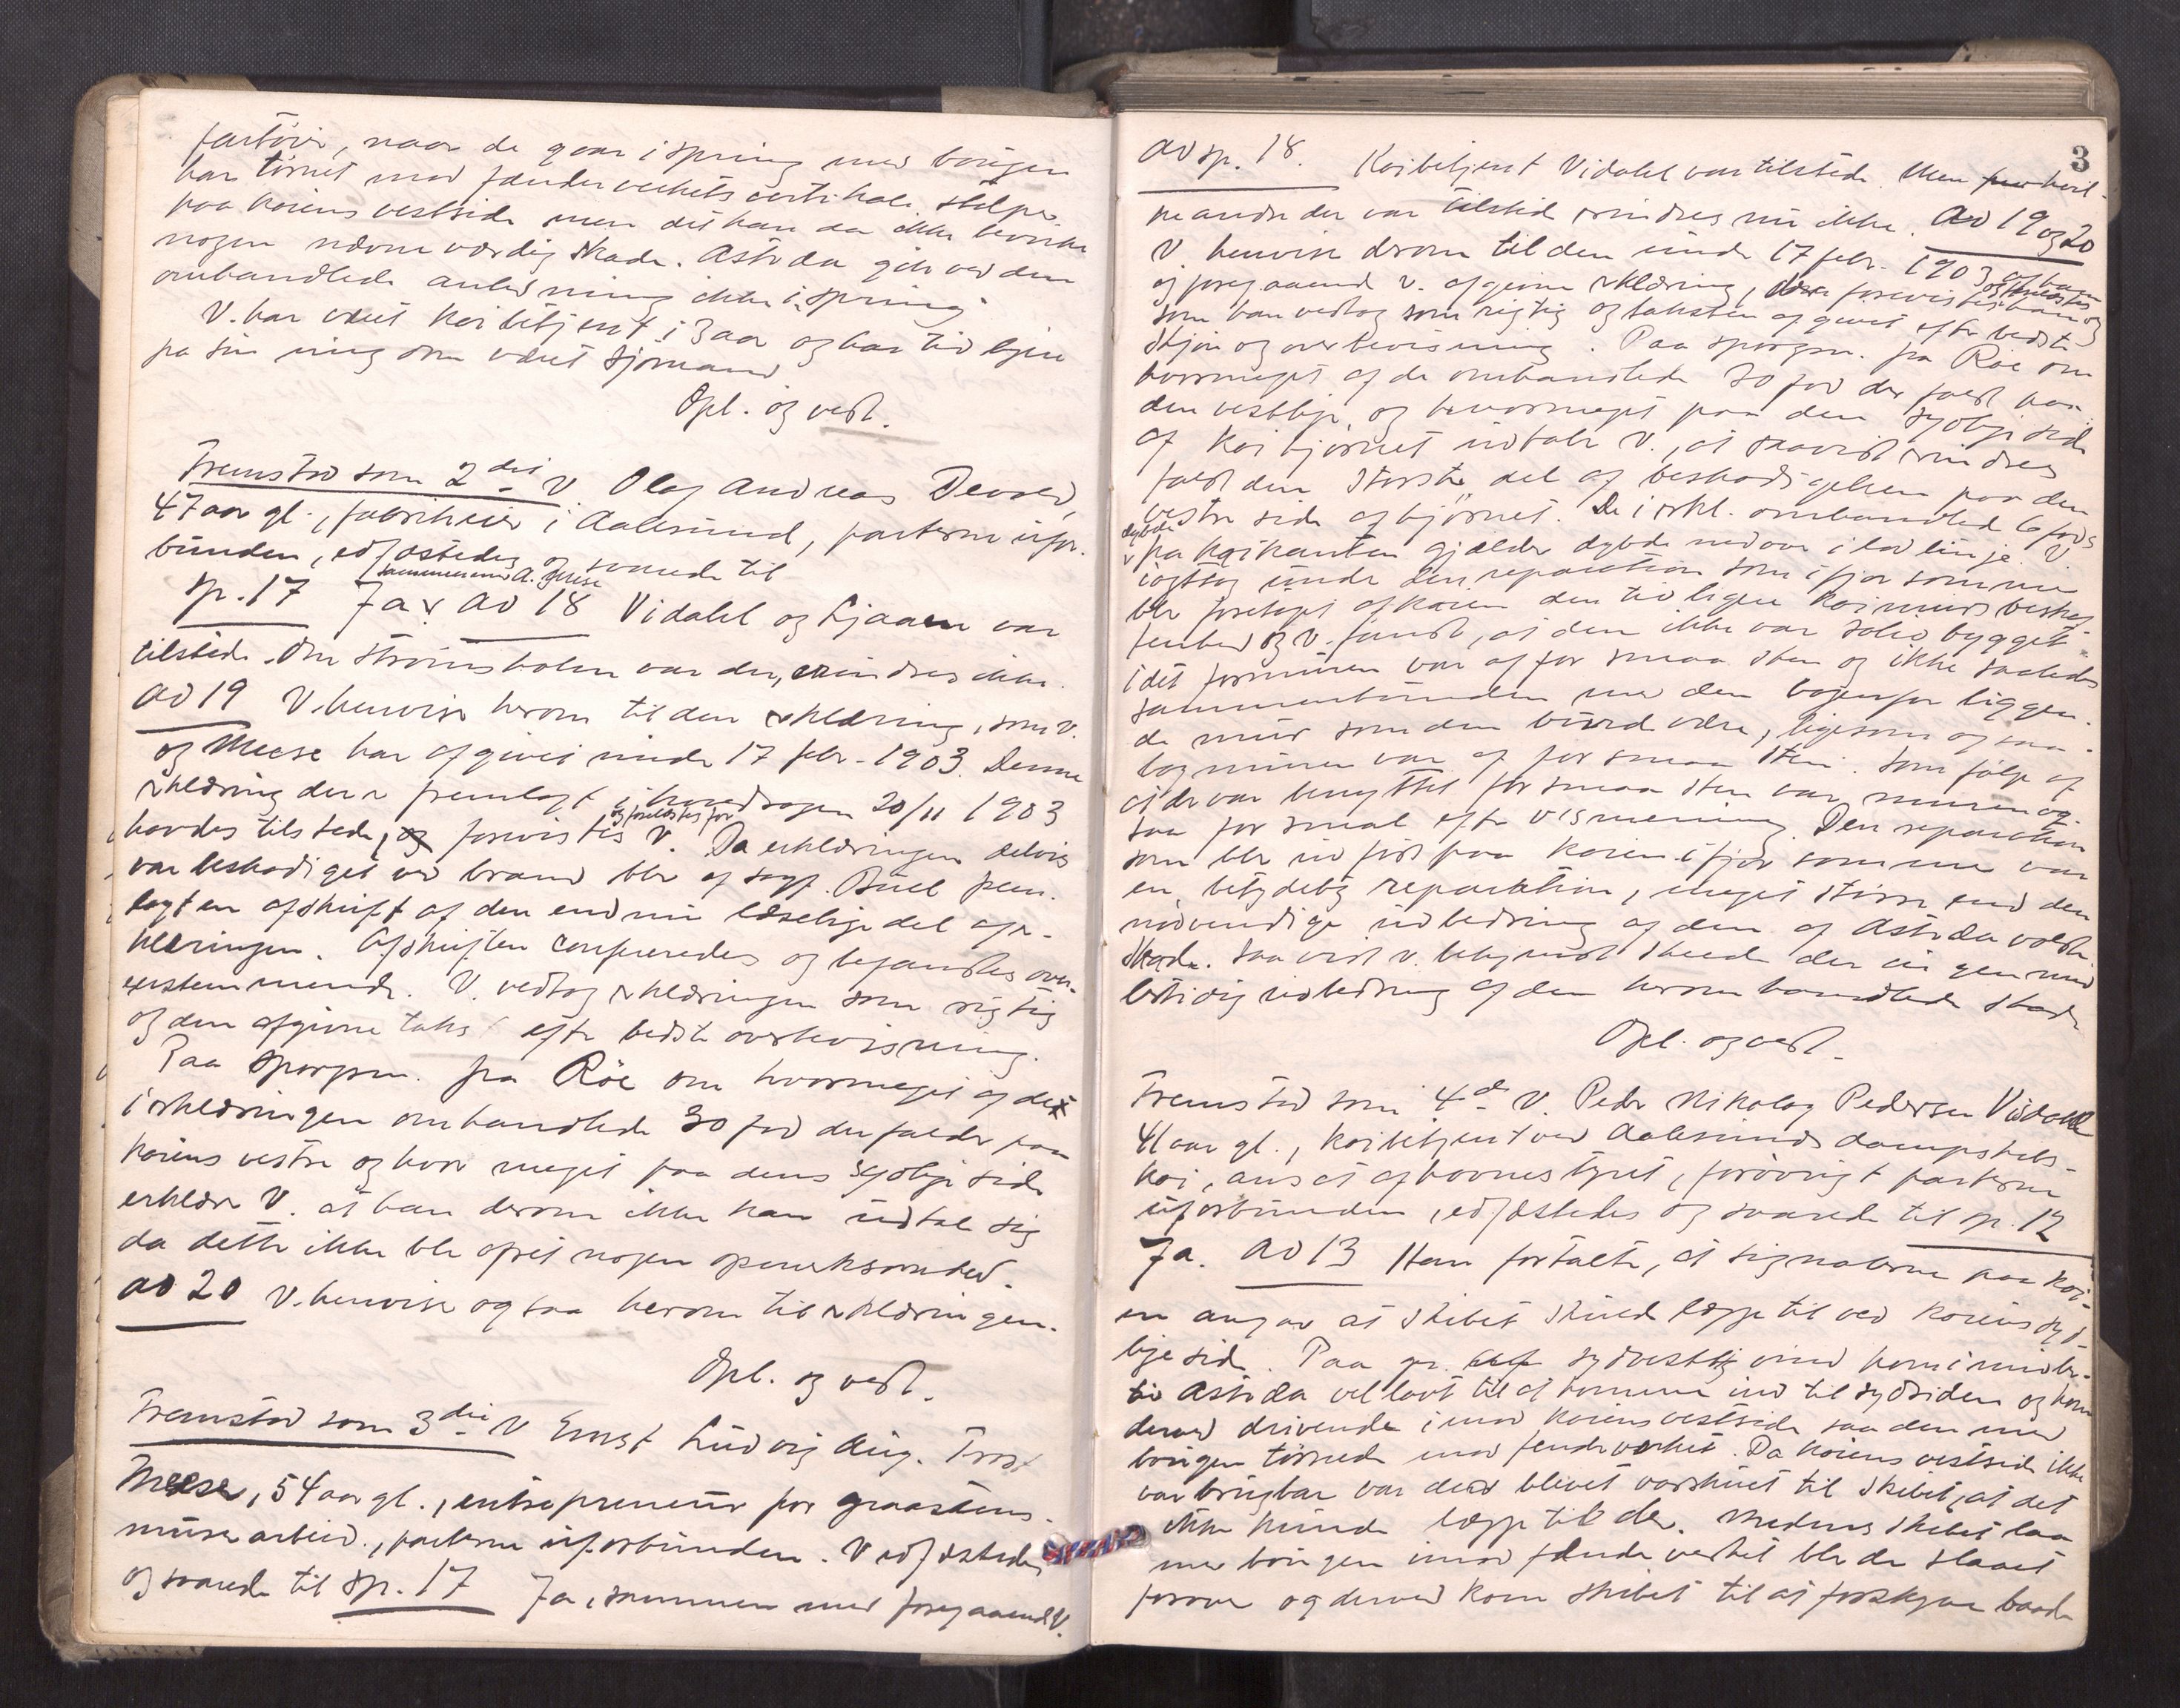 fartöier, naar de gaar i spring med bougen
har törnet mod fenderverkets vertikale stolper
paa kaiens vestside men det kan da ikke bevirke
nogen nævneværdig skade. Astræa gik ved den
ombandlede anledning ikke i spring
V. har været kaibetjent i 3 aar og har tidligere
fra sin ungdom været sjömand
Opl. og vedt.
Fremstod som 2det V. Olaf Andreas Devold,
47 aar gl., fabrikeier i Aalesund, parterne ufor-
bunden, edfæstedes og svarede til
sammen med A. Meese
sp. 17 Ja. ad 18 Vidahl og Ljaaen var
tilstede. Om Strömsholm var der, erindres ikke.
ad 19 V. henviser herom til den erklæring, som v.
og Meese har afgivet under 17 febr. 1903. Denne
erklæring der er fremlagt i hovedsagen 20/11 1903
og forelæstes for
havdes tilstede, forevistes V. Da erklæringen delvis
var beskadiget ved brand blev af sagf. Buel frem-
lagt en afskrift af den endnu læselige del af er-
klæringen. Afskriften confereredes og befandtes over-
ensstemmende. V. vedtog erklæringen som rigtig
og den afgivne takst efter bedste overbevisning.
Paa spörgsm. fra Röe om hvormeget af det
i erklæringen ombandlede 30 fod der falder paa
kaiens vestre og hvor meget paa dens sydlige side
erklærer V. at han derom ikke kan udtale sig
da dette ikke blev ofret nogen opmerksomhed.
ad 20 V. henviser ogsaa herom til erklæringen.
Opl. og vedt.
Fremstod som 3die V Ernst Ludvig Aug. Trost
Meese, 54 aar gl., entrepreneur for graastens-
murerarbeid, parterne uforbunden. V edfæstedes
og svarede til sp. 17 Ja, sammen med foregaaende V.
3
ad sp. 18. Kaibetjent Vidahl var tilstede. Men hvil-
ke andre der var tilstede erindres nu ikke. ad 19 og 20
V. henviser derom til den under 17 febr. 1903 af ham
og foregaaende v. afgivne erklæring, der forevistes ham og
som han vedtog som rigtig og taksten afgivet efter bedste
skjön og overbevisning. Paa spörgsm. fra Röe om
hvormeget af de ombandlede 30 fod der faldt paa
den vestlige og hvormeget paa den sydlige side
af kaihjörnet udtaler V., at saavidt erindres
faldt den störste del af beskadigelsen paa den
vestre side af hjörnet. De i erkl. ombandlede 6 fods
dybde
fra kaikanten gjælder dybde nedover i lodlinje. V.
iagttog under den reparation som i fjor sommer
blev foretaget af kaien den tidligere kaimurs beskaf-
fenhed og V. fandt, at den ikke var solid bygget
idet formuren var af for smaa sten og ikke saaledes
sammenbunden med den bagenfor liggen-
de mur som den burde være, ligesom ogsaa
bagmuren var af for smaa sten. Som fölge af
at der var benyttet for smaa sten var muren og-
saa for smal efter V's mening. Den reparation
som blev udfört paa kaien i fjor sommer var
en betydelig reparation, meget större end den
nödvendige udbedring af den af Astræa voldte
skade. Saavidt v. bekjendt skede der ingen mid-
lertidig udbedring af den herom bandlede skade
Opl. og vedt.
Fremstod som 4de V. Peder Nikolay Pedersen Vidahl
41 aar gl., kaibetjent ved Aalesunds dampskibs-
kai, ansat af havnestyret, forövrigt parterne
uforbunden, edfæstedes og svarede til sp. 12
Ja. ad 13 Han fortalte, at signalerne paa kai-
en angav at skibet skulde lægge til ved kaiens syd-
lige side. Paa gr. af sydvestlig vind kom imidler-
tid Astræa vel lavt til at komme ind til sydsiden og kom
derved drivende imod kaiens vestside saa den med
bougen törnede mod fenderverket. Da kaiens vestside ikke
var brugbar var der blevet varskuet til skibet, at det
ikke kunde lægge til der. Medens skibet laa
med bougen imod fenderverket blev der slaaet
forover og derved kom skibet til at forskyve baade